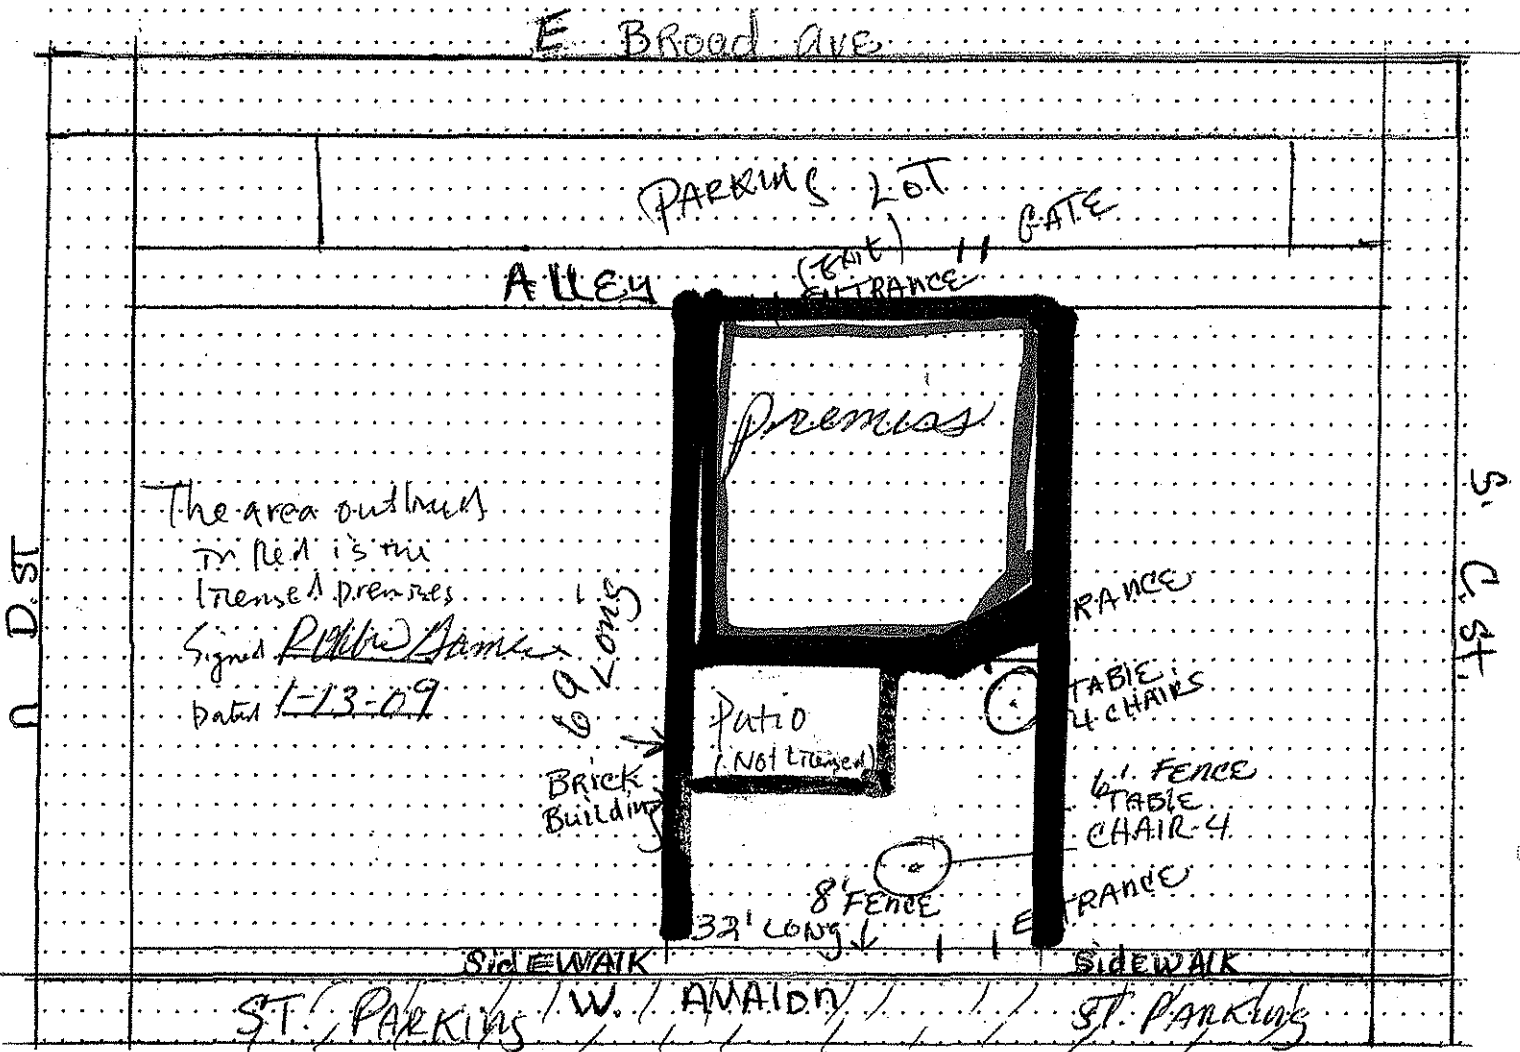 E BRoad Ave
PARKING LOT
GATE
Alley
(Exit)
ENTRANCE
Premiss
The area outlined
in Red is the
licensed premises
Signed
Dated 1-13-09
N D. ST
S. C. St.
69 LONG
RANCE
TABLE
4 CHAIRS
Patio
(Not Licensed)
BRICK
Building
6' FENCE
TABLE
CHAIR-4
8' FENCE
32' LONG
ENTRANCE
SIdEWAlK
SIdEWAlK
ST. PARKING
W. AVAlon
ST. PARKING